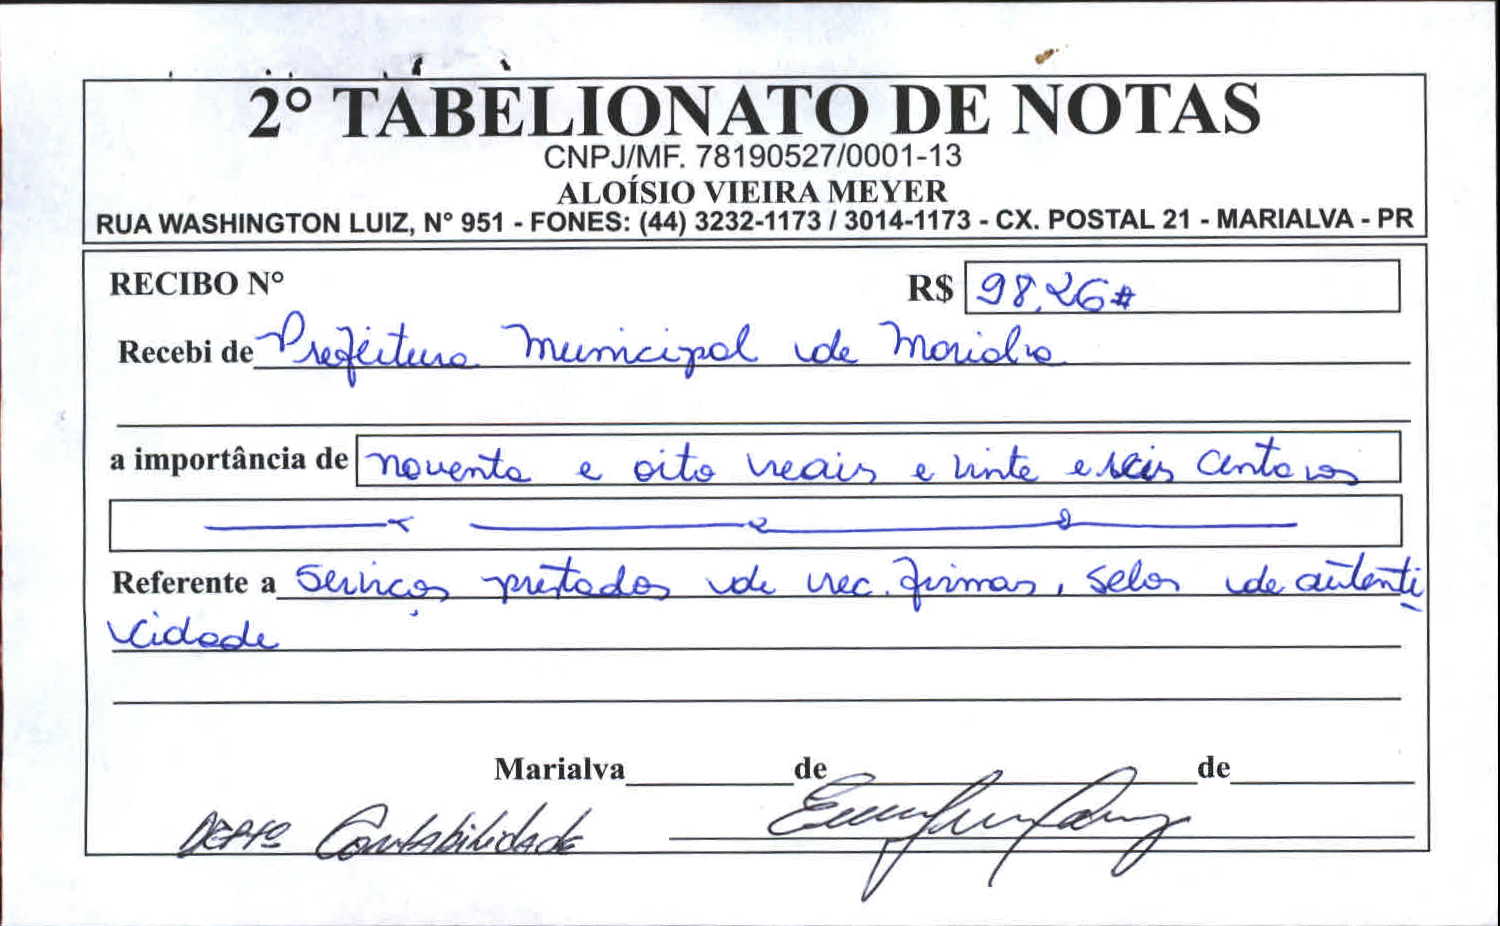 2º TABELIONATO DE NOTAS
CNPJ/MF. 78190527/0001-13
ALOÍSIO VIEIRA MEYER
RUA WASHINGTON LUIZ, Nº 951 - FONES: (44) 3232-1173 / 3014-1173 - CX. POSTAL 21 - MARIALVA - PR
RECIBO Nº R$ 98,26#
Recebi de Prefeitura Municipal de Marialva
a importância de noventa e oito reais e vinte e seis centavos
Referente a Serviços prestados de rec. firmas, selos de autenti
cidade
Marialva de de
DEPTO Contabilidade